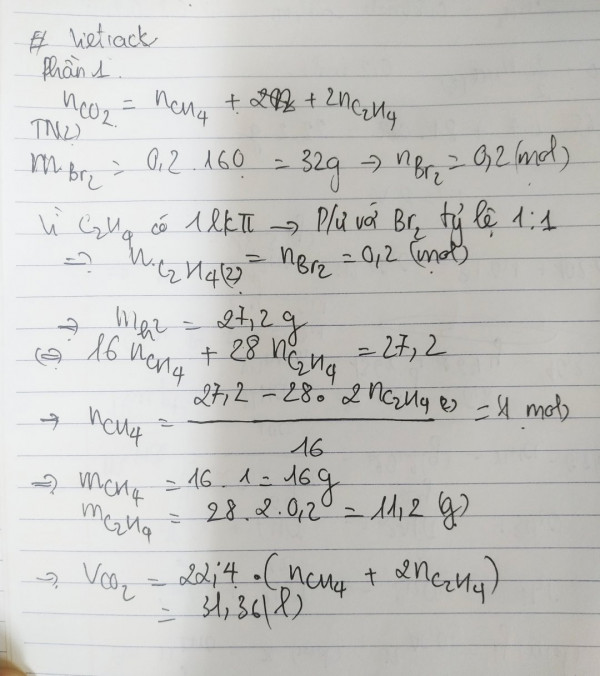 # Vietrack
Phần 1.
nCO2 = nCH4 + + 2nC2H4
TN2)
mBr2 = 0,2 . 160 = 32g → nBr2 = 0,2 (mol)
Vì C2H4 có 1 lk π → P/ư với Br2 tỷ lệ 1:1
=> nC2H4(2) = nBr2 = 0,2 (mol)
→ mh2 = 27,2 g
<=> 16 nCH4 + 28 nC2H4 = 27,2
→ nCH4 = (27,2 - 28. 2 nC2H4 (2)) / 16 = 1 mol
=> mCH4 = 16 . 1 = 16g
mC2H4 = 28 . 2 . 0,2 = 11,2 (g)
→ VCO2 = 22,4 . (nCH4 + 2nC2H4)
= 31,36 (l)